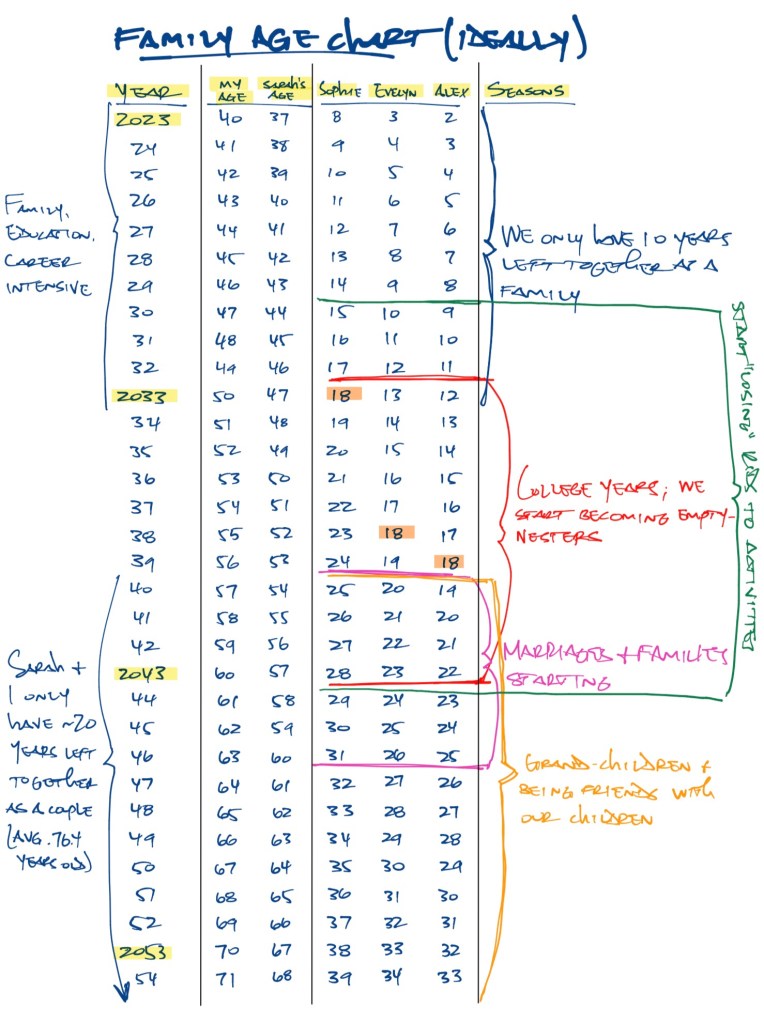 FAMILY AGE CHART (IDEALLY)
YEAR MY AGE SARAH'S AGE SOPHIE EVELYN ALEX SEASONS
2023 40 37 8 3 2
24 41 38 9 4 3
25 42 39 10 5 4
26 43 40 11 6 5
27 44 41 12 7 6
28 45 42 13 8 7
29 46 43 14 9 8
30 47 44 15 10 9
31 48 45 16 11 10
32 49 46 17 12 11
2033 50 47 18 13 12
34 51 48 19 14 13
35 52 49 20 15 14
36 53 50 21 16 15
37 54 51 22 17 16
38 55 52 23 18 17
39 56 53 24 19 18
40 57 54 25 20 19
41 58 55 26 21 20
42 59 56 27 22 21
2043 60 57 28 23 22
44 61 58 29 24 23
45 62 59 30 25 24
46 63 60 31 26 25
47 64 61 32 27 26
48 65 62 33 28 27
49 66 63 34 29 28
50 67 64 35 30 29
51 68 65 36 31 30
52 69 66 37 32 31
2053 70 67 38 33 32
54 71 68 39 34 33
FAMILY,
EDUCATION,
CAREER
INTENSIVE
SARAH +
I ONLY
HAVE ~20
YEARS LEFT
TOGETHER
AS A COUPLE
(AVG. 76.4
YEARS OLD)
WE ONLY HAVE 10 YEARS
LEFT TOGETHER AS A
FAMILY
START "LOSING" KIDS TO ACTIVITIES
COLLEGE YEARS; WE
START BECOMING EMPTY-
NESTERS
MARRIAGES + FAMILIES
STARTING
GRAND-CHILDREN +
BEING FRIENDS WITH
OUR CHILDREN